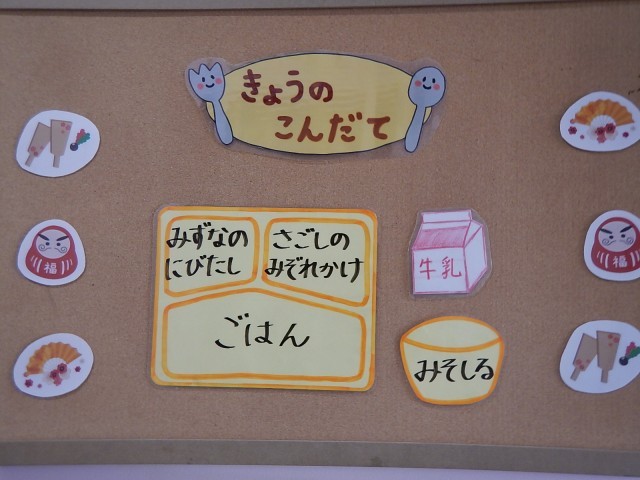 きょうの
こんだて
みずなの
にびたし
さごしの
みぞれかけ
ごはん
牛乳
みそしる
福
福